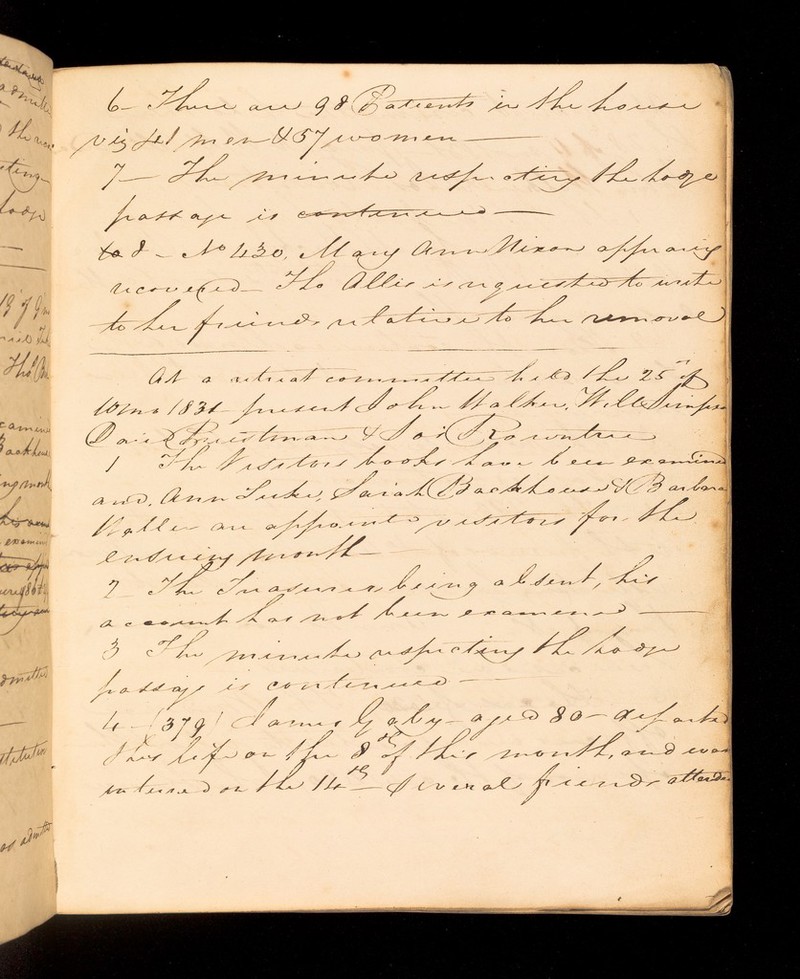 6 - There are 98 Patients in the house
viz 41 men & 57 women -
7 - The minute respecting the Lodge
passage is continued -
8 - No 430, Mary Ann Nixon appearing
recovered - Tho Allis is requested to write
to her friends relative to her removal
At a retreat committee held the 25th of
10 mo 1831 present John Walker, Will Simpson
David Priestman & Jos Rowntree
1 The Visitors books have been examined
and, Ann Tuke, Sarah Backhouse & Barbara
Waller are appointed visitors for the
ensuing month -
2 The Treasurer being absent, his
account has not been examined -
3 The minute respecting the Lodge
passage is continued -
4 - (379) James Gaby - aged 80 - departed
this life on the 8th of this month, and was
interred on the 14th - Several friends attended